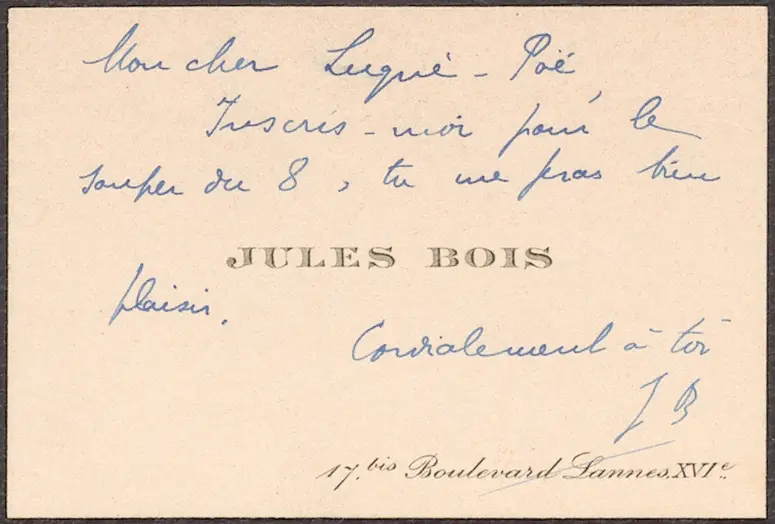 Mon cher Lugné-Poë,
Inscris-moi pour le
souper du 8, tu me feras bien
JULES BOIS
plaisir.
Cordialement à toi
J B
17.bis Boulevard Lannes.XVIe.